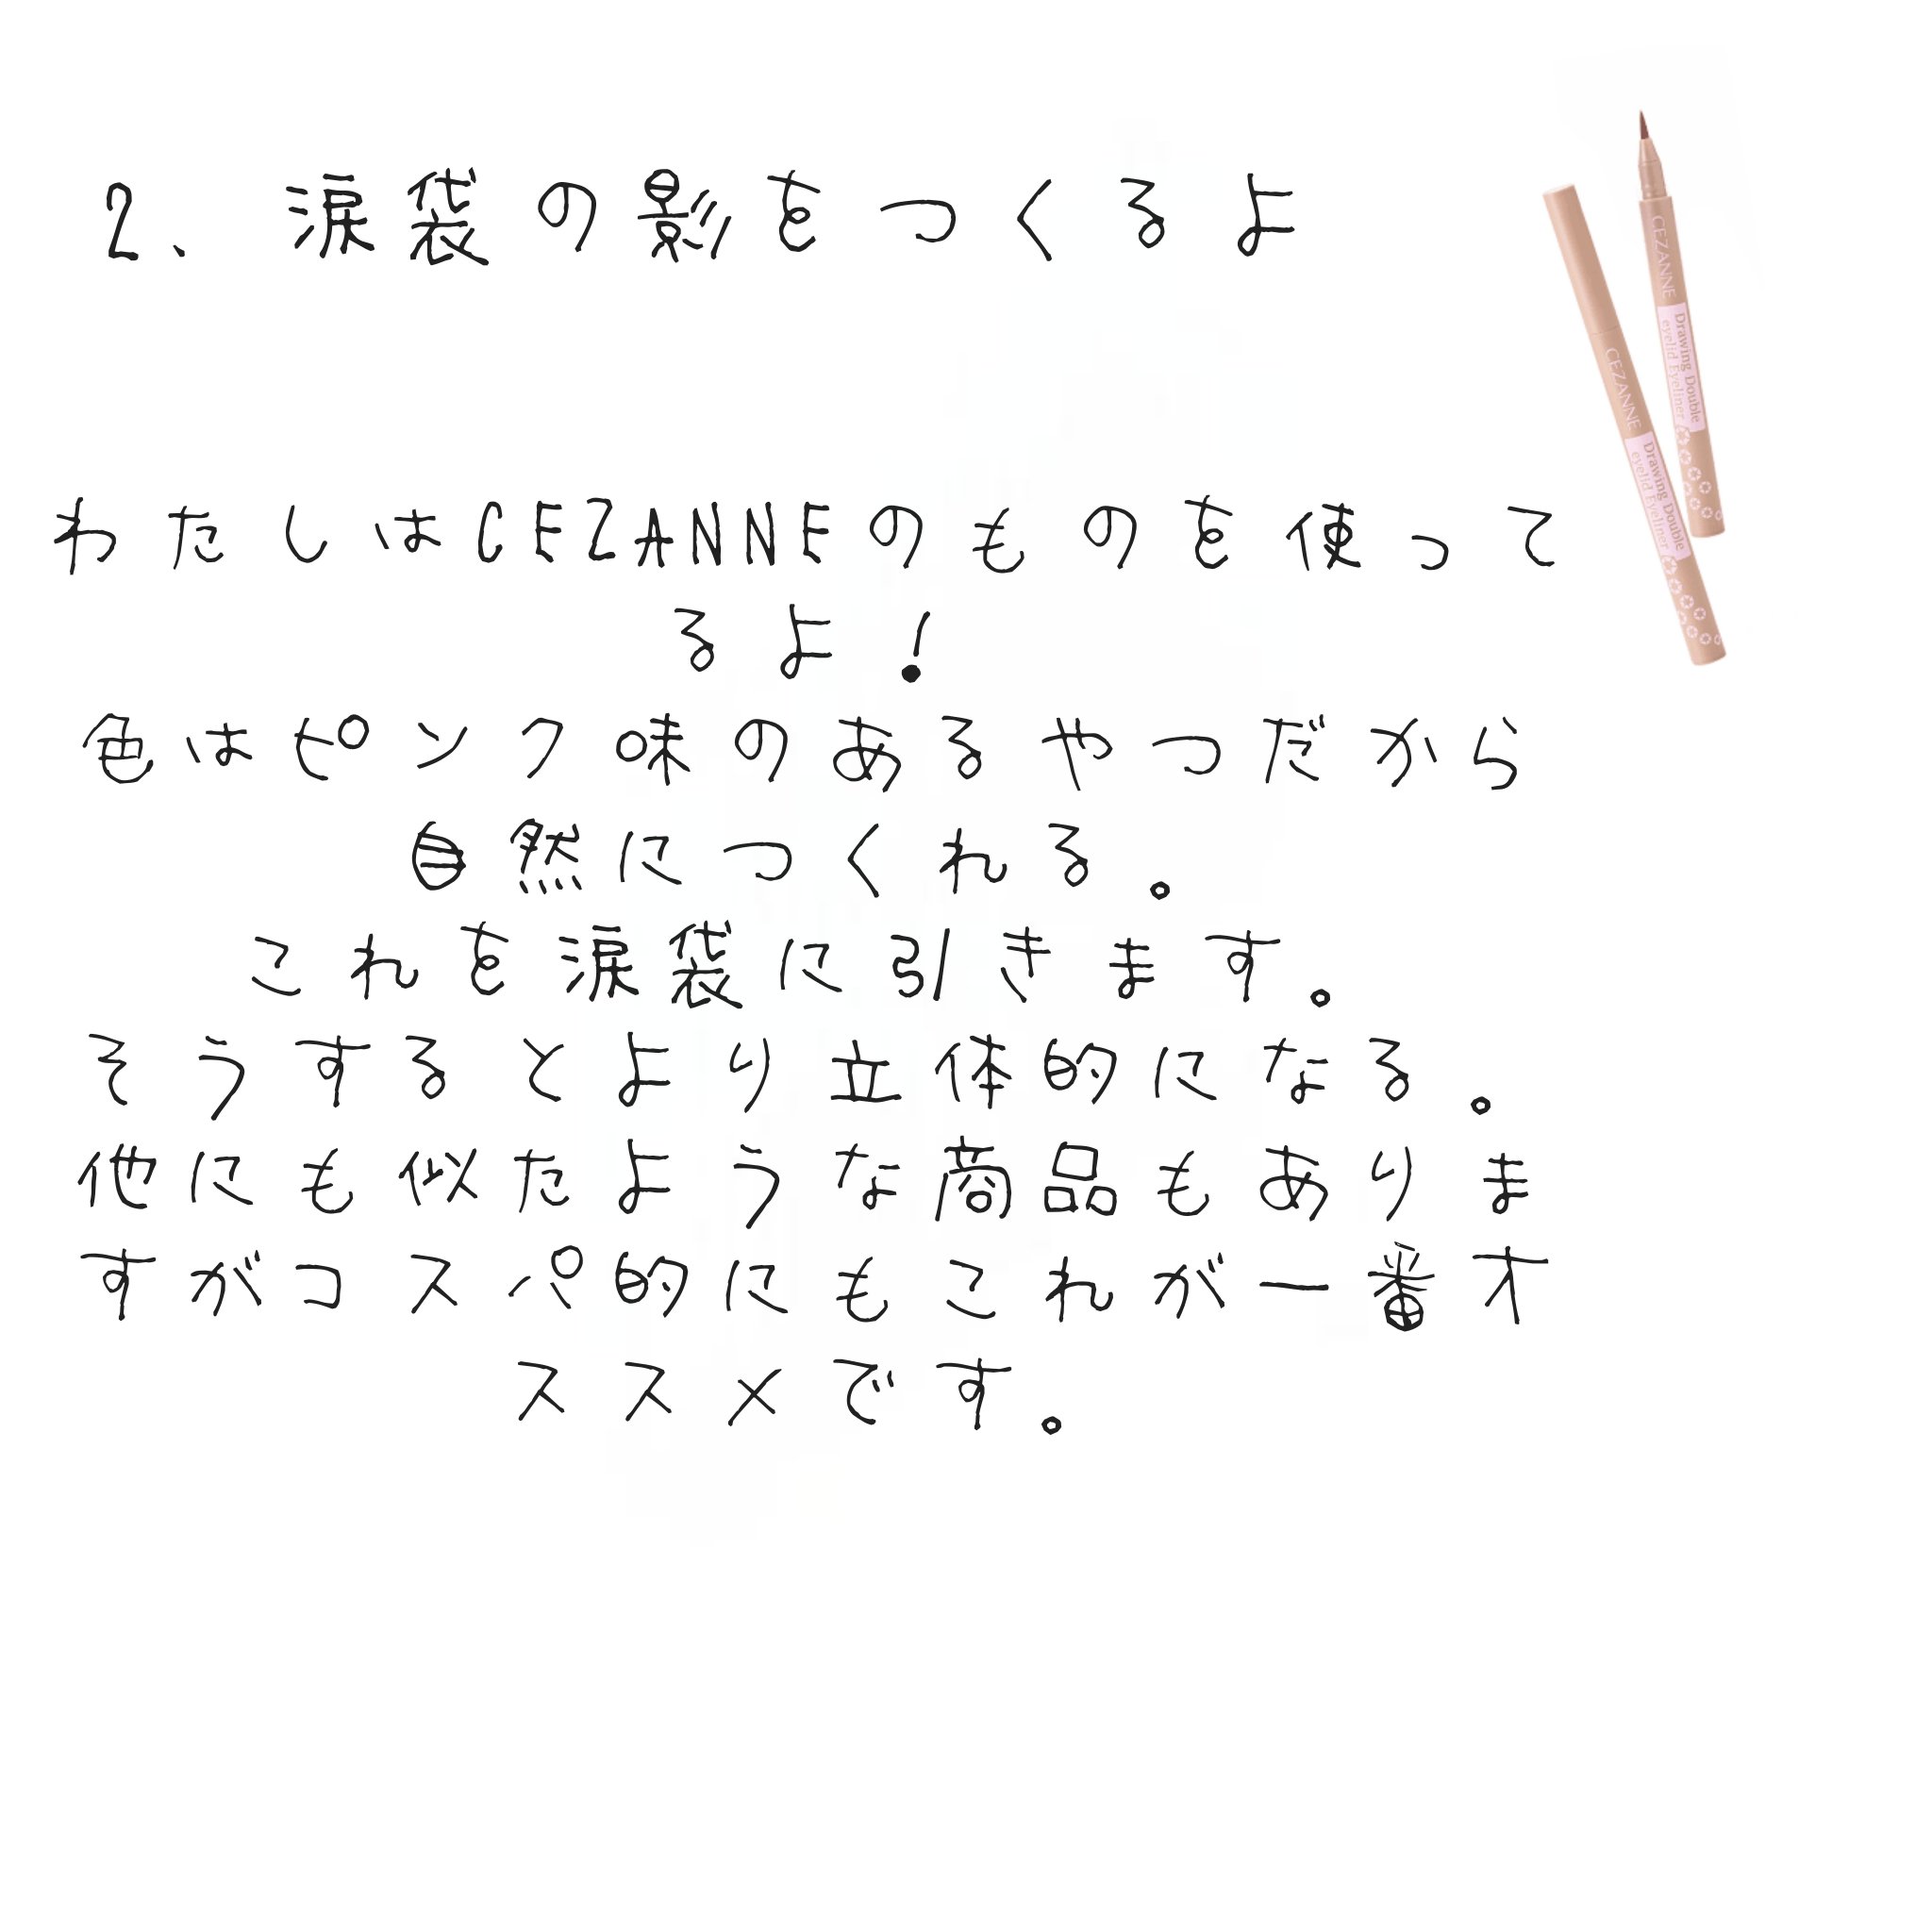 2、涙袋の影をつくるよ
わたしはCEZANNEのものを使って
るよ!
色はピンク味のあるやつだから
自然につくれる。
これを涙袋に引きます。
そうするとより立体的になる。
他にも似たような商品もありま
すがコスパ的にもこれが一番オ
ススメです。
CEZANNE
Drawing Double
eyelid Eyeliner
CEZANNE
Drawing Double
eyelid Eyeliner